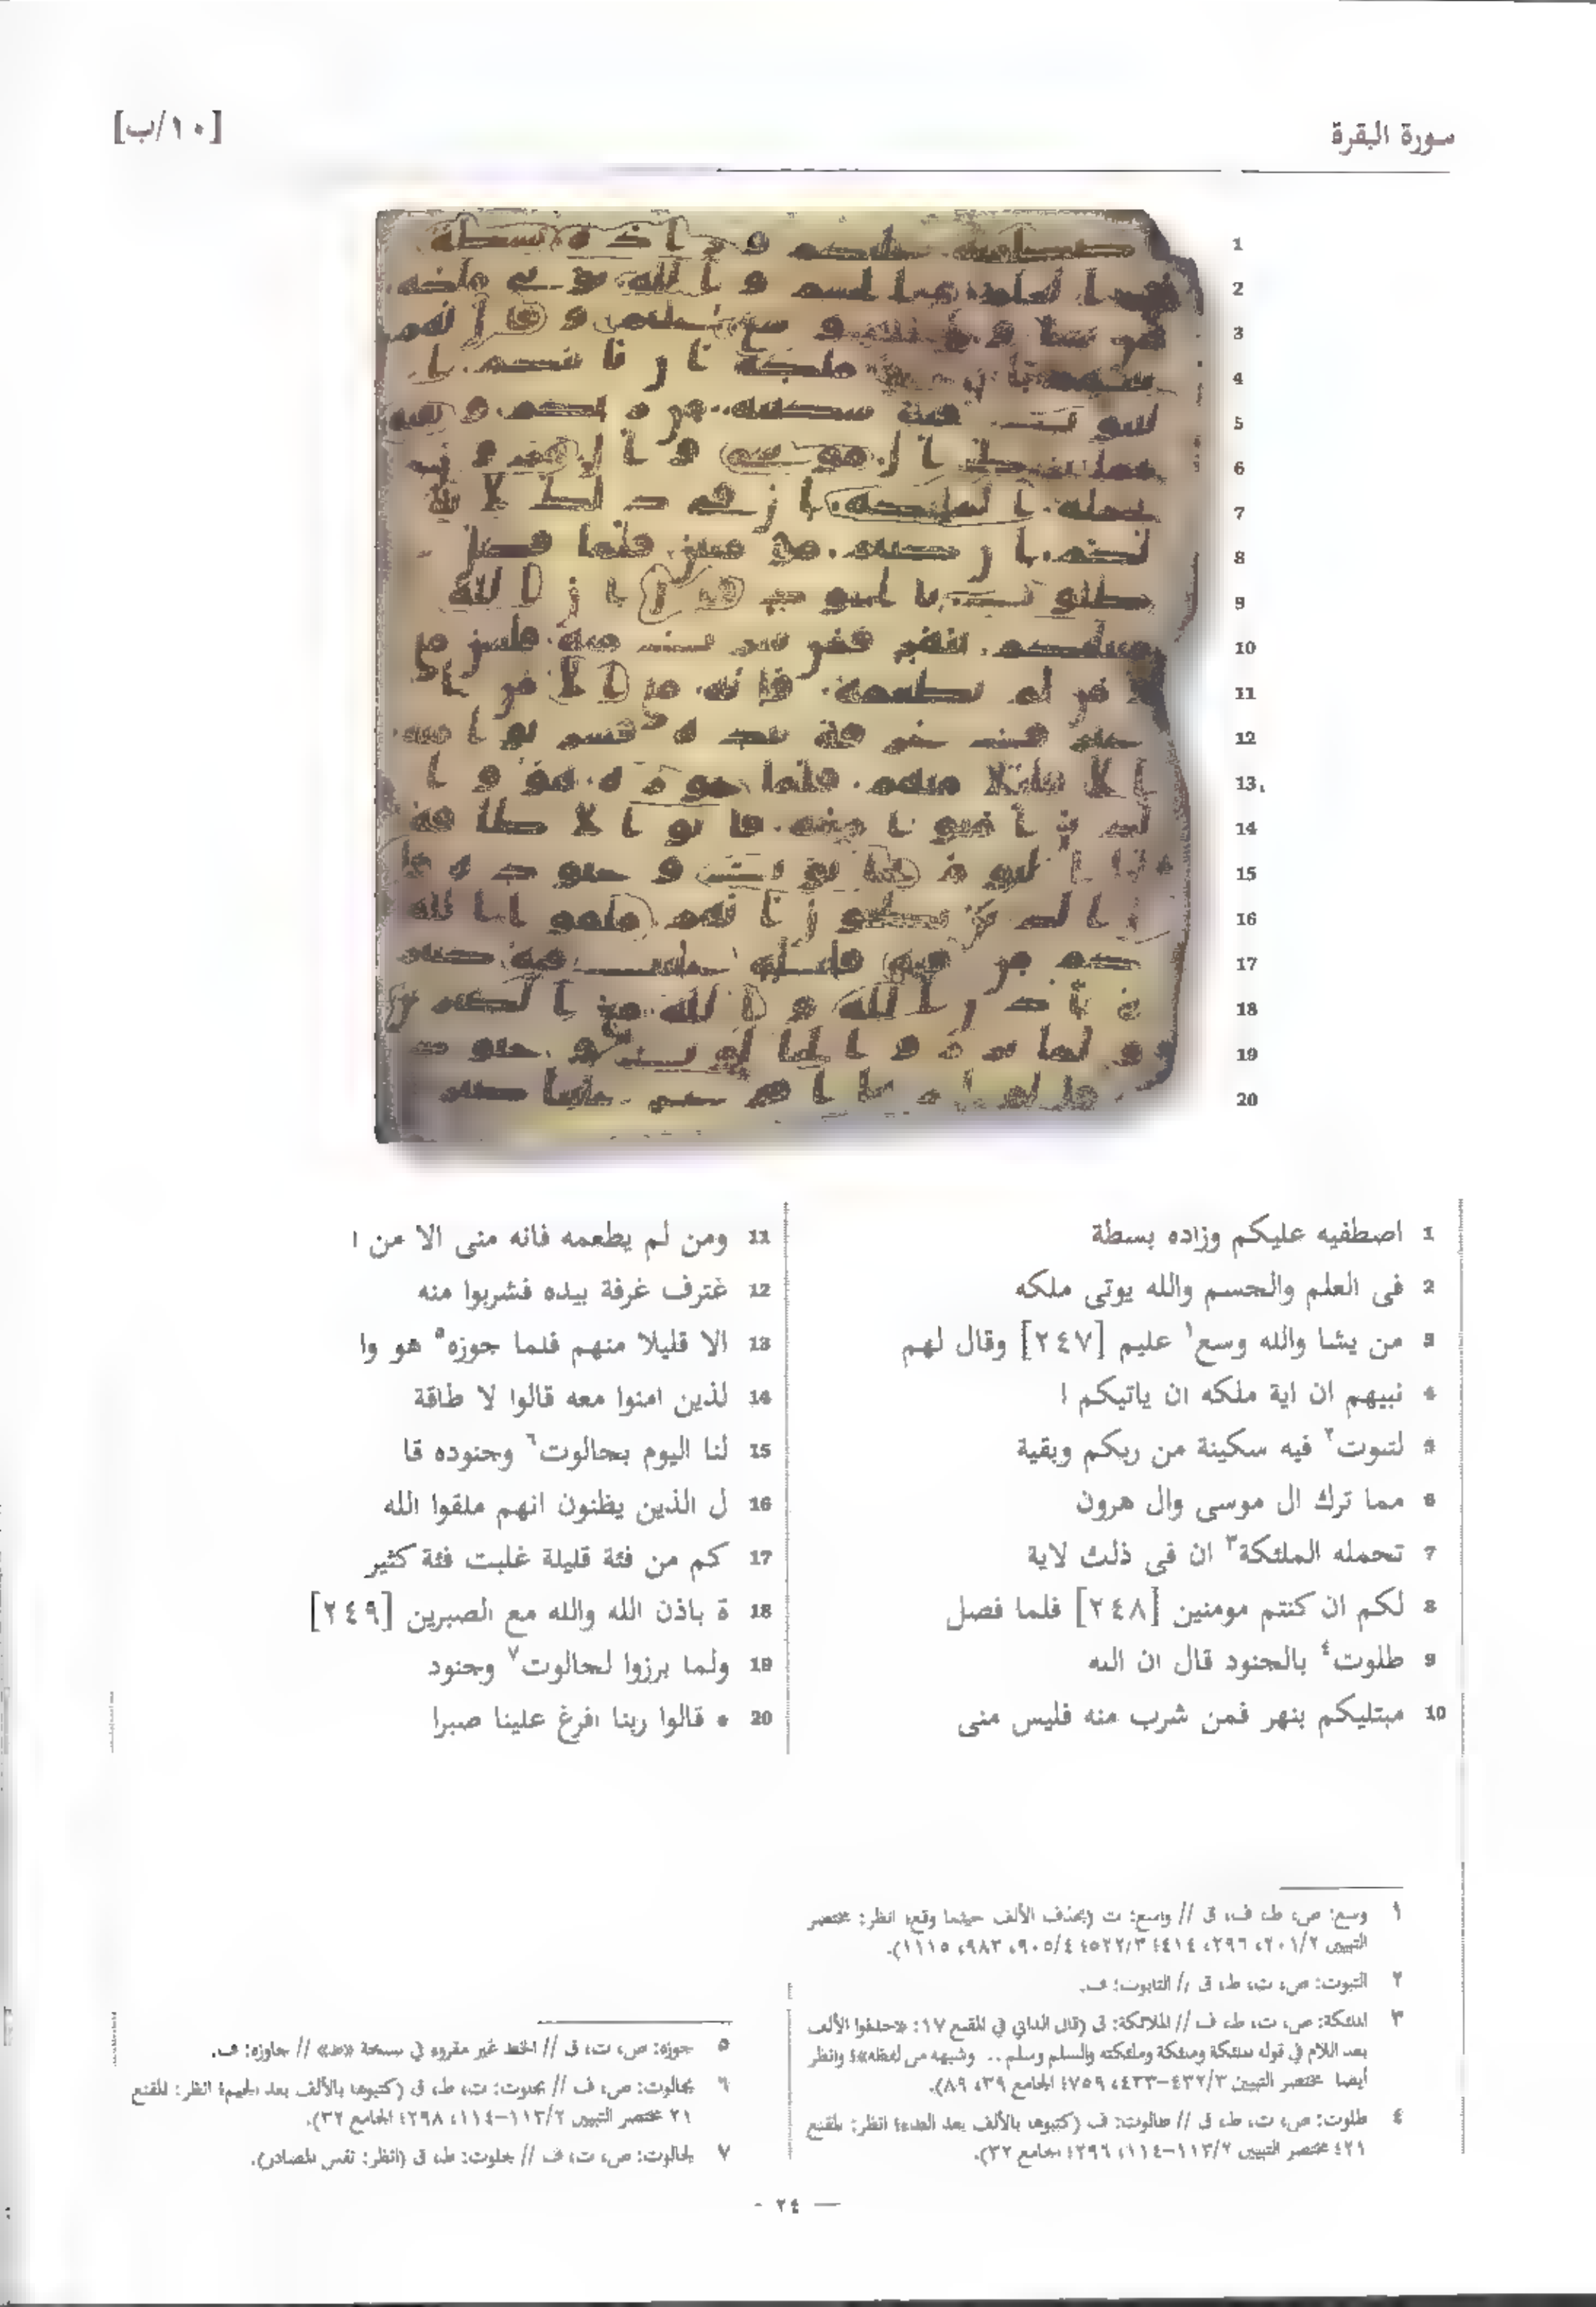 سورة البقرة
[١٠/ب]
1 اصطفيه عليكم وزاده بسطة
2 فى العلم والجسم والله يوتى ملكه
3 من يشا والله وسع١ عليم [٢٤٧] وقال لهم
4 نبيهم ان اية ملكه ان ياتيكم ا
5 لتبوت٢ فيه سكينة من ربكم وبقية
6 مما ترك ال موسى وال هرون
7 تحمله الملئكة٣ ان فى ذلك لاية
8 لكم ان كنتم مومنين [٢٤٨] فلما فصل
9 طلوت٤ بالجنود قال ان الله
10 مبتليكم بنهر فمن شرب منه فليس منى
11 ومن لم يطعمه فانه منى الا من ا
12 غترف غرفة بيده فشربوا منه
13 الا قليلا منهم فلما جوزه٥ هو وا
14 لذين امنوا معه قالوا لا طاقة
15 لنا اليوم بجالوت٦ وجنوده قا
16 ل الذين يظنون انهم ملقوا الله
17 كم من فئة قليلة غلبت فئة كثير
18 ة باذن الله والله مع الصبرين [٢٤٩]
19 ولما برزوا لجالوت٧ وجنود
20 ه قالوا ربنا افرغ علينا صبرا
١ وسع: ص، ط، ف، ق // واسع: ت (بحذف الألف حيثما وقع؛ انظر: مختصر
التبيين ٢٠١/٢، ٢٩٦، ٤١٤؛ ٥٢٢/٣؛ ٩٠٥/٤، ٩٨٣، ١١١٥).
٢ التبوت: ص، ت، ط، ق // التابوت: ف.
٣ الملئكة: ص، ت، ط، ف // الملائكة: ق (قال الداني في المقنع ١٧: «حذفوا الألف
بعد اللام في قوله ملئكة وملئكته والسلم وسلم .. وشبهه من لفظه»؛ وانظر
أيضا مختصر التبيين ٤٣٢/٣-٤٣٣، ٧٥٩؛ الجامع ٣٩، ٨٩).
٤ طلوت: ص، ت، ط، ق // طالوت: ف (كتبوها بالألف بعد الطاء؛ انظر: المقنع
٢١؛ مختصر التبيين ١١٣/٢-١١٤، ٢٩٦؛ الجامع ٣٢).
٥ جوزه: ص، ت، ق // الخط غير مقروء في نسخة «ط» // جاوزه: ف.
٦ بجالوت: ص، ف // بجلوت: ت، ط، ق (كتبوها بالألف بعد الجيم؛ انظر: المقنع
٢١ مختصر التبيين ١١٣/٢-١١٤، ٢٩٨؛ الجامع ٣٢).
٧ لجالوت: ص، ت، ف // جلوت: ط، ق (انظر: نفس المصادر).
- ٢٤ -